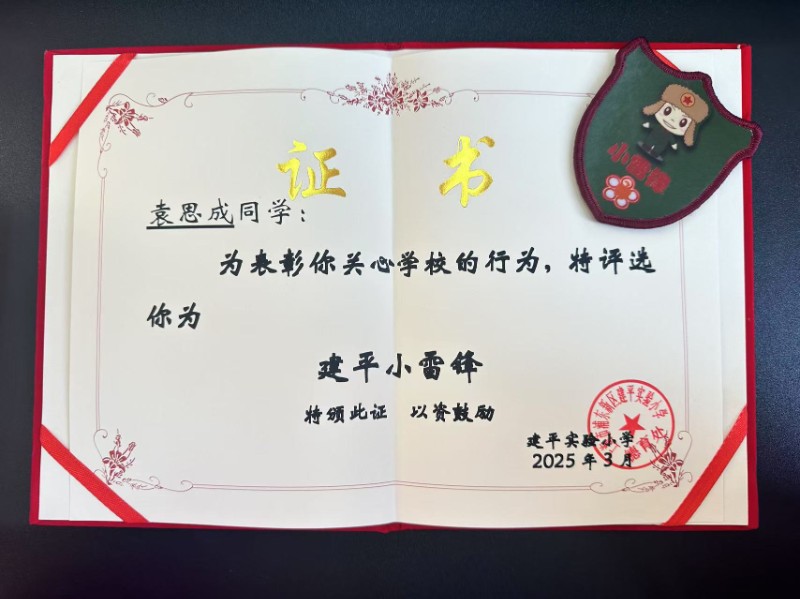 证 书
小雷锋
袁思成同学：
为表彰你关心学校的行为，特评选
你为
建平小雷锋
特颁此证 以资鼓励
建平实验小学
2025年3月
浦东新区建平实验小学